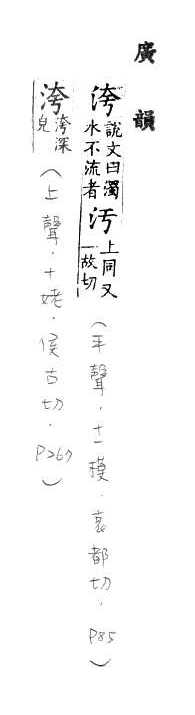 廣韻
洿 說文曰濁水不流者 汙 上同又一故切 （平聲．十一模．哀都切．P85）
洿 洿深皃 （上聲．十姥．侯古切．P267）